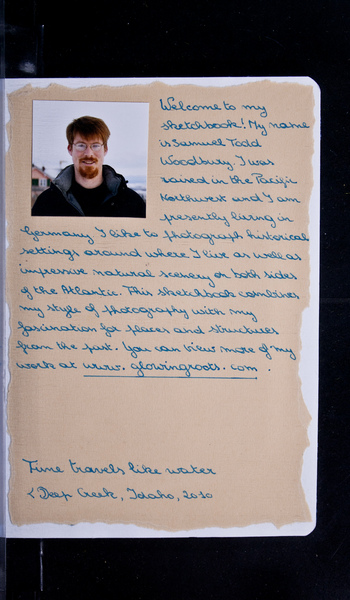 Welcome to my
sketchbook! My name
is Samuel Todd
Woodbury. I was
raised in the Pacific
Northwest and I am
presently living in
Germany. I like to photograph historical
settings around where I live as well as
impressive natural scenery on both sides
of the Atlantic. This sketchbook combines
my style of photography with my
fascination for places and structures
from the past. You can view more of my
work at www.glowingroots.com.
Time travels like water
< Deep Creek, Idaho, 2010